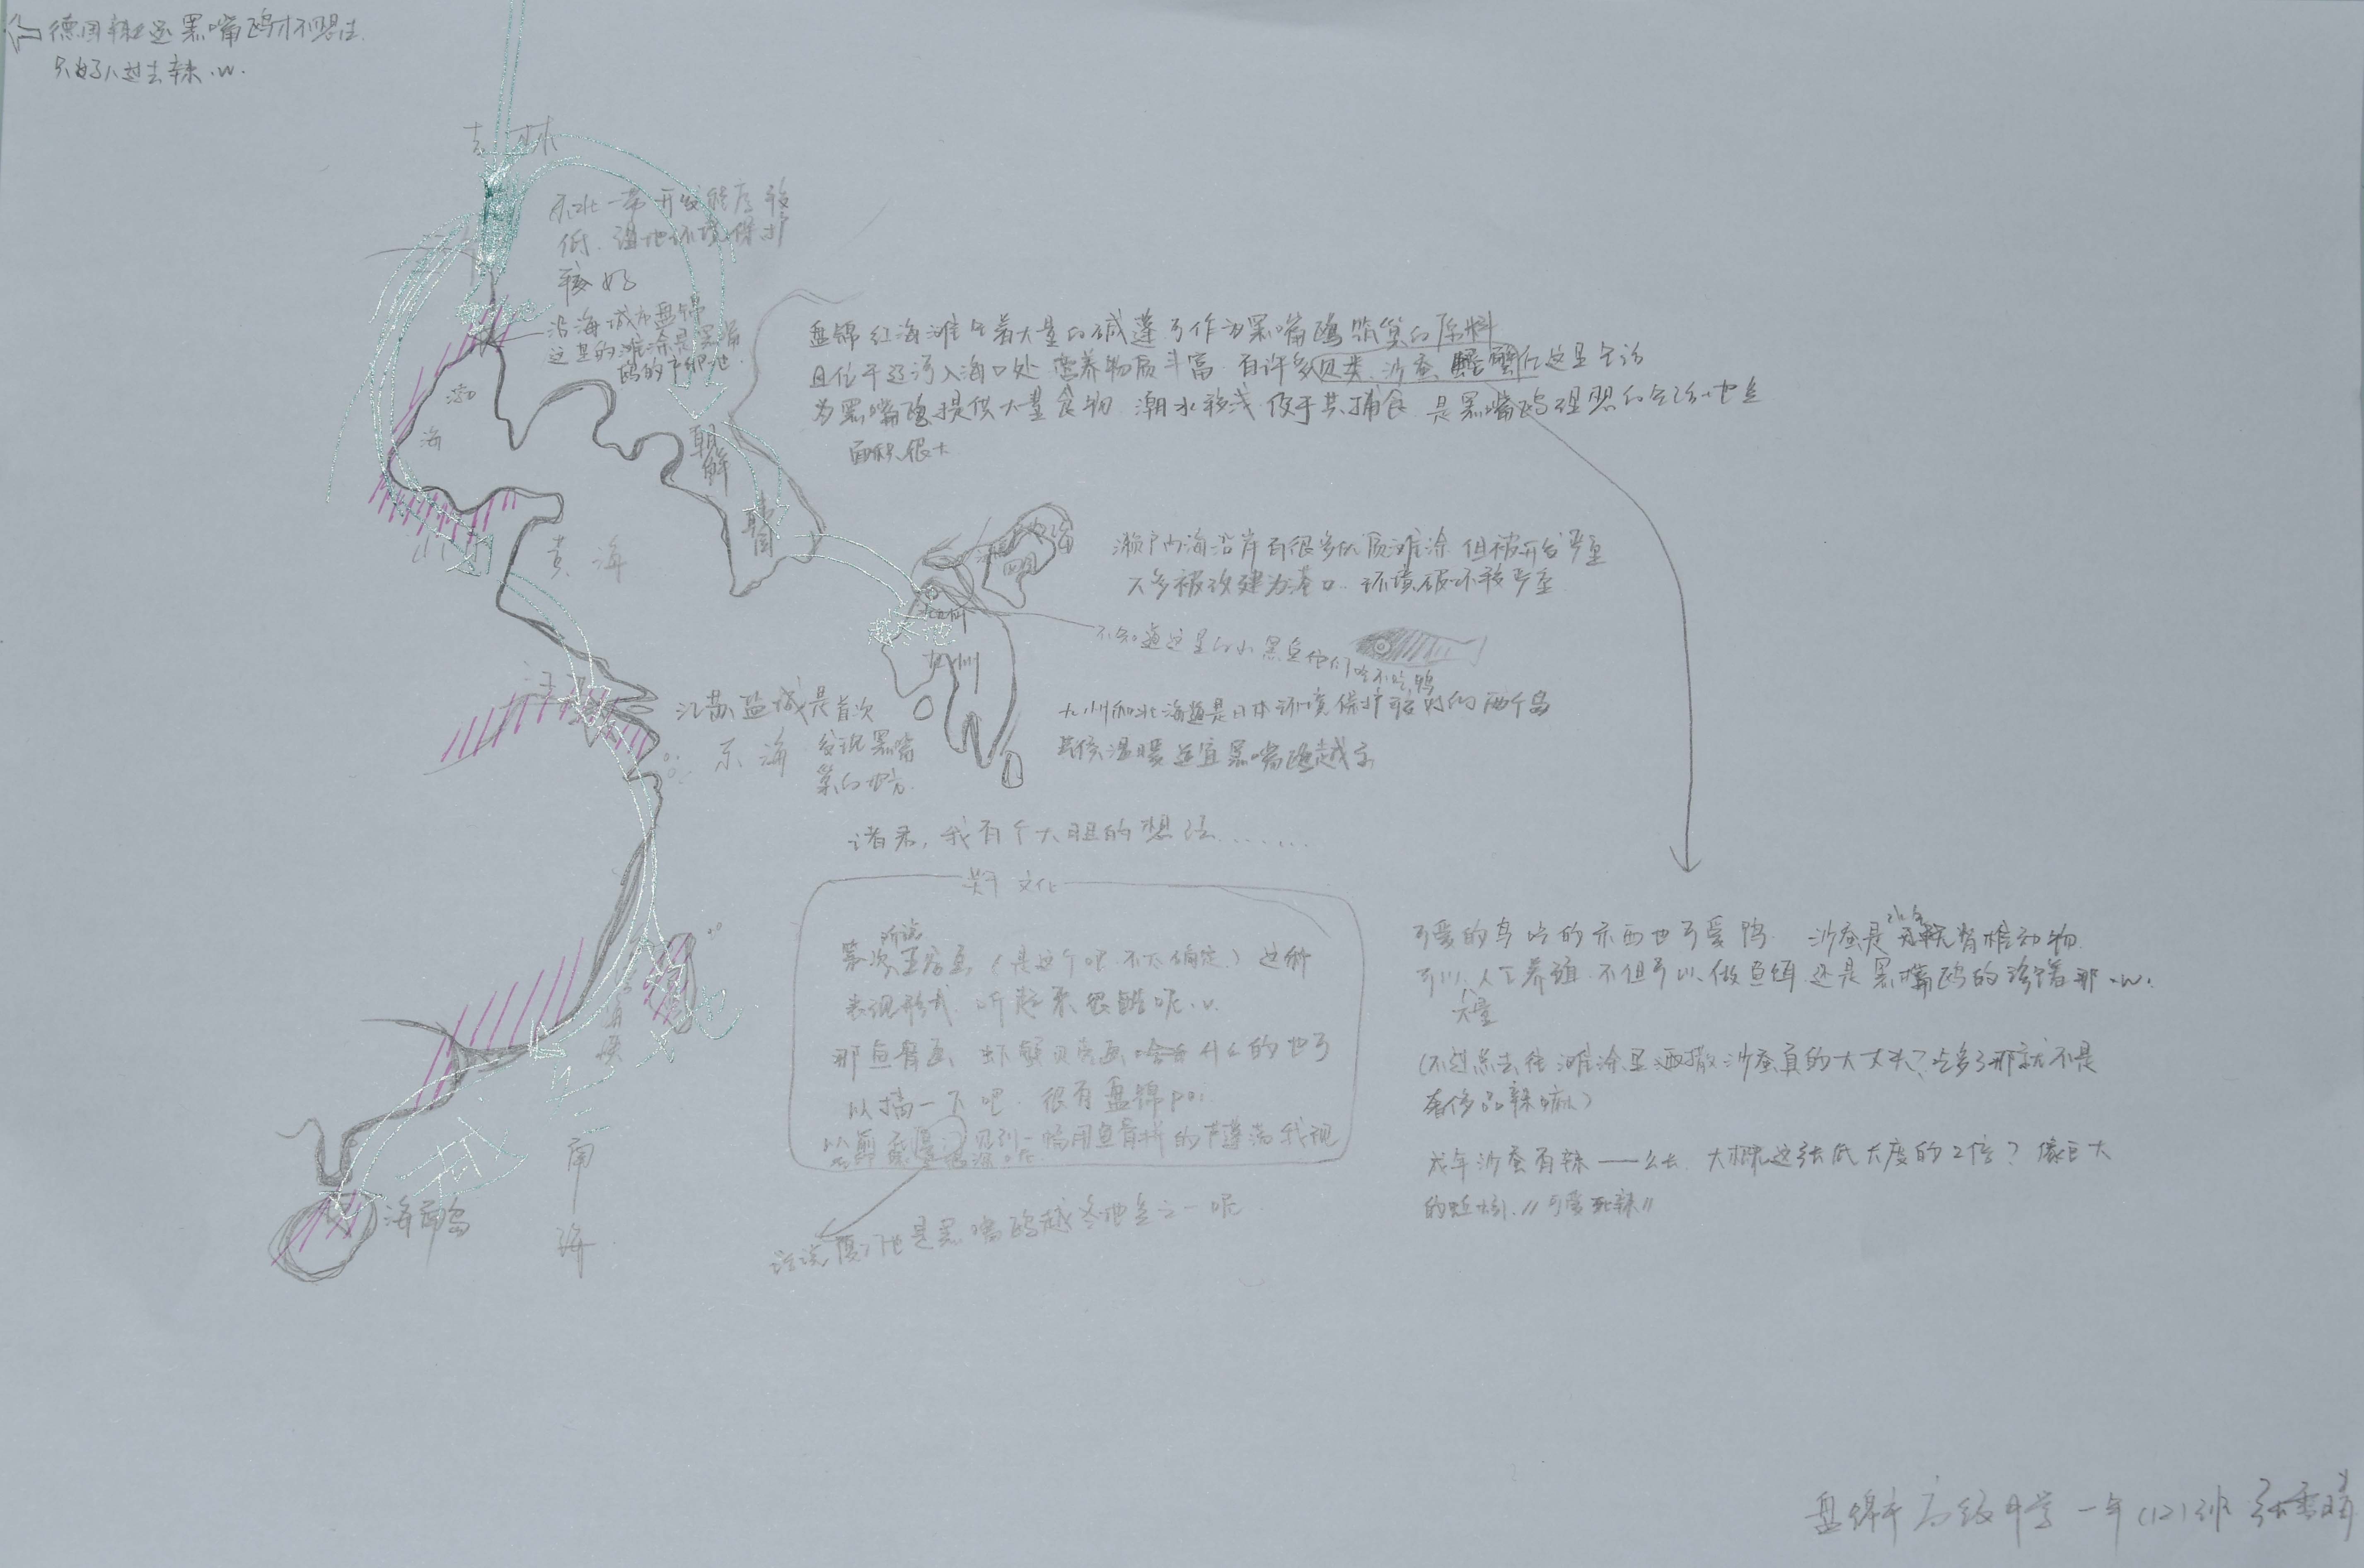 德国辣么远黑嘴鸥才不想去
只好人过去辣.w.
吉林
东北一带开发程度较
低.湿地环境保护
较好
沿海城市盘锦
这里的滩涂是黑嘴
鸥的产卵地
盘锦红海滩生着大量的碱蓬可作为黑嘴鸥筑巢的原料
且位于辽河入海口处 营养物质丰富 有许多贝类、沙蚕、螃蟹在这里生活
为黑嘴鸥提供大量食物 潮水较浅 便于其捕食 是黑嘴鸥理想的生活地点
面积很大
渤
海
朝鲜
韩国
山东
黄海
濑户内海
四国
濑户内海沿岸有很多优质滩涂 但被开发严重
大多被改建为港口.环境破坏较严重
不知道这里的小黑鱼他们吃不吃鸭
九州
九州和北海道是日本环境保护较好的两个岛
气候温暖适宜黑嘴鸥越冬
江苏盐城是首次
发现黑嘴
巢的地方
东海
诸君,我有个大胆的想法......
关于文化
所说
(是这个吧 不太确定)这种
表现形式 听起来很酷呢.w.
那鱼骨画、虾蟹贝壳画 什么的也可
以搞一下吧.很有盘锦poi
话说厦门也是黑嘴鸥越冬地点之一呢
可爱的鸟吃的东西也可爱鸭 沙蚕是 无脊椎动物
可以人工养殖 不但可以做鱼饵 还是黑嘴鸥的 那.w.
大量
(不过点去往滩涂里洒撒沙蚕真的大丈夫?吃多了那就不是
奢侈品辣嘛)
成年沙蚕有辣——么长 大概这张纸长度的2倍? 像巨大
的蚯蚓.//可爱死辣//
海峡
南
海
海南岛
盘锦市高级中学 一年(12)班